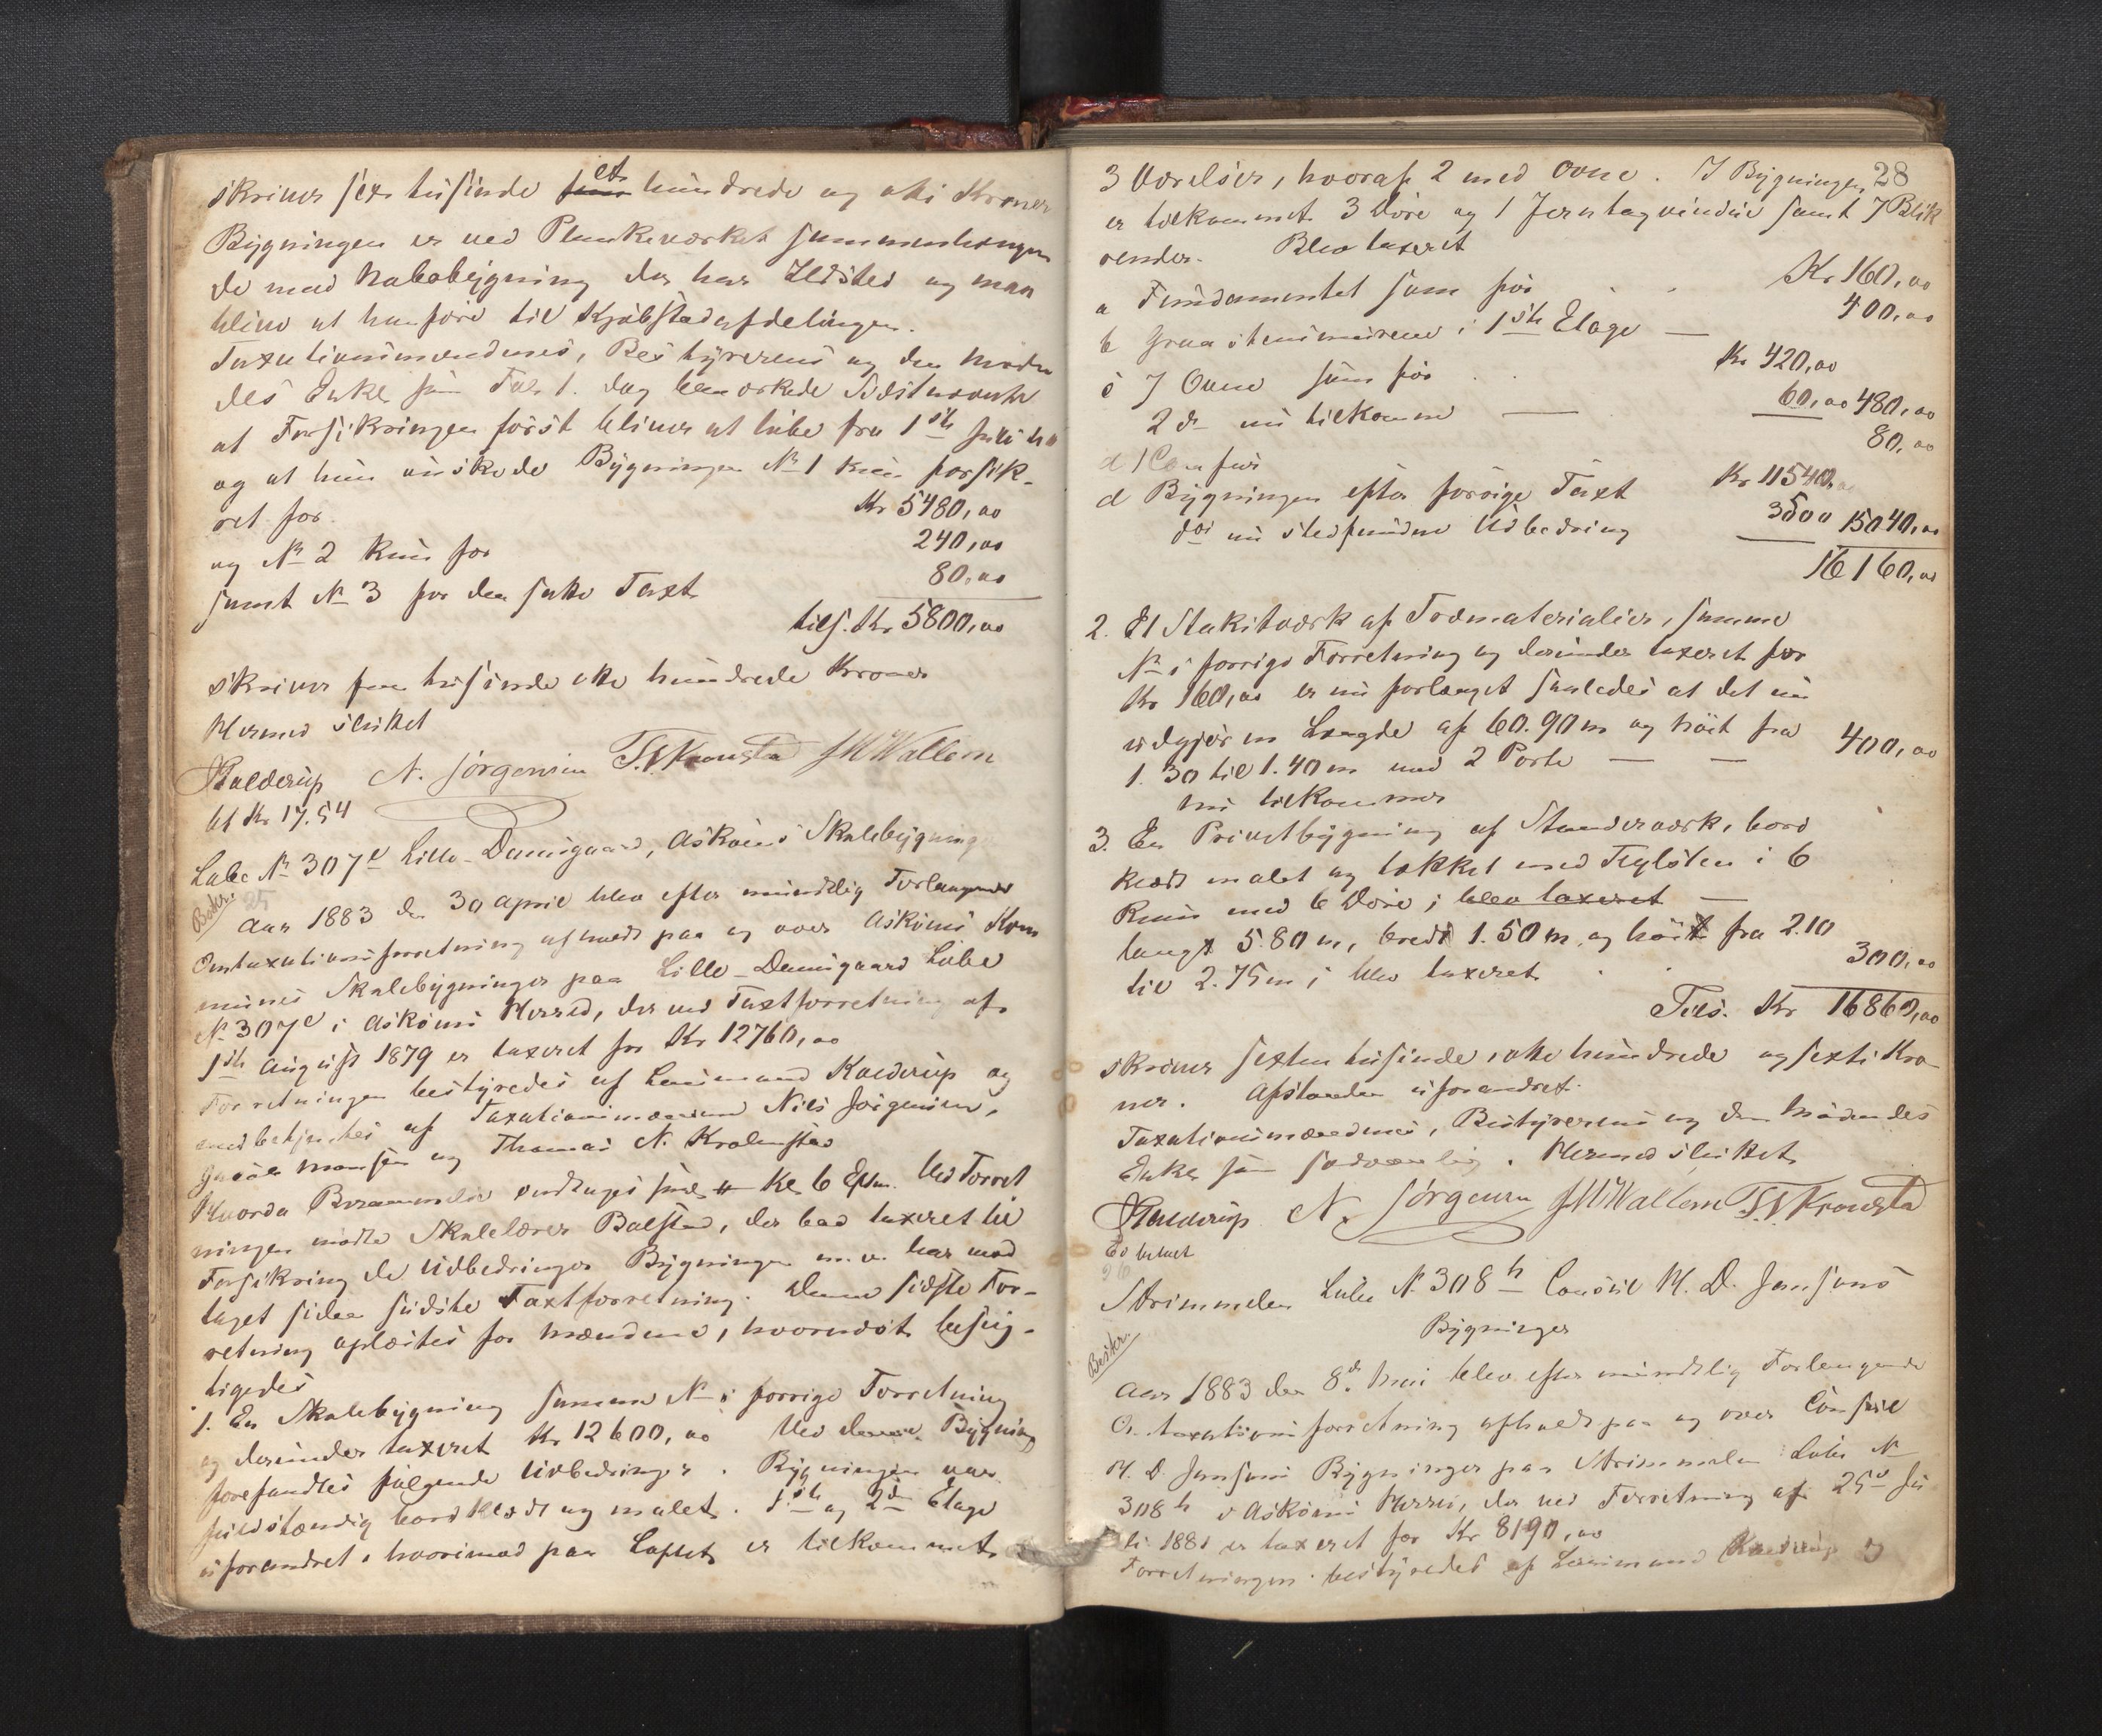 skriver sex tusinde et hundrede og otti Kroner
Bygningen er ved Plankeværket sammenhængen
de med Nabobygning der har Ildsted og maa
blive at henføre til Kjøbstadafdelingen.
Taxationsmændenes, Bestyrerens og den møden
des Enke som Fol. 1. dog bemærkede Sidstnævnte
at Forsikringen først bliver at løbe fra 1ste Juli
og at hun ønskede Bygningen No 1 kun forsik-
ret for Kr 5480,00
og No 2 kun for 240,00
samt No 3 for den satte Taxt 80,00
tils. Kr 5800,00
skriver fem tusinde otte hundrede Kroner
Hermed sluttet
Kalderup N. Jørgensen T. N. Kronsta J M Wallem
bt Kr 17.54
Løbe No 307e Lille-Damsgaard, Askøens Skolebygning
Beskr. 25
Aar 1883 den 30 April blev efter mundtlig Forlangende
Omtaxationsforretning afholdt paa og over Askøens Kom
munes Skolebygninger paa Lille-Damsgaard Løbe
No 307e i Askøens Herred, der ved Taxtforretning af
1ste August 1879 er taxeret for Kr 12760,00
Forretningen bestyredes af Lensmand Kalderup og
medbetjentes af Taxationsmændene Nils Jørgensen,
Monsen og Thomas N. Kralmstad
Hvorda Berammelse modtages Kl. 6 Eftm. Ved Forret
ningen mødte Skolelærer Balstad, der bad taxeret til
Forsikring de Udbedringer Bygningen m.v. har mod
taget siden sidste Taxtforretning. Denne sidste For-
retning oplæstes for Mændene, hvornæst besig-
tigedes
1. En Skolebygning samme No i forrige Forretning
og derunder taxeret Kr 12600,00 Ved denne Bygning
forefandtes følgende Udbedringer. Bygningen var
fuldstændig bordklædt og malet. 1ste og 2den Etage
uforandret, hvorimod paa Loftet er tilkommet
28
3 Værelser, hvoraf 2 med Ovne. I Bygningen
er tilkommet 3 Døre og 1 Jerntagvindue samt 7 Blik
render. Blev taxeret
a Fundamentet som før Kr 160,00
b Graastensmurene i 1ste Etage 400,00
c 7 Ovne som før Kr 420,00
2 do nu tilkomne 60,00 480,00
d 1 Comfur 80,00
d Bygningen efter forrige Taxt Kr 11540,00
for nu stedfundne Udbedring 3500 15040,00
16160,00
2. Et Stakitværk af Træmaterialier, samme
No i forrige Forretning og derunder taxeret for
Kr 160,00 er nu forlænget saaledes at det nu
udgjør en Længde af 60.90 m og høit fra
1.30 til 1.40 m med 2 Porte 400,00
nu tilkommer
3. En Privetbygning af Standerværk, bord
klædt malet og tækket med Teglsten i 6
Rum med 6 Døre; blev taxeret
langt 5.80 m, bredt 1.50 m og høit fra 2.10
til 2.75 m; blev taxeret 300,00
Tils. Kr 16860,00
skriver sexten tusinde, otte hundrede og sexti Kro-
ner. Afstanden uforandret.
Taxationsmændenes, Bestyrerens og den mødendes
Enke som sædvanlig. Hermed sluttet
Kalderup N. Jørgensen J M Wallem T. N. Kronsta
Er betalt
26
Strimmelen Løbe No 308h Consul H. D. Jansons
Bygninger
Beskr.
Aar 1883 den 8de Mai blev efter mundtlig Forlangende
Omtaxationsforretning afholdt paa og over Consul
H. D. Jansons Bygninger paa Strimmelen Løbe No
308h i Askøens Herred, der ved Forretning af 25de Ju
li 1881 er taxeret for Kr 8190,00
Forretningen bestyredes af Lensmand Kalderup og